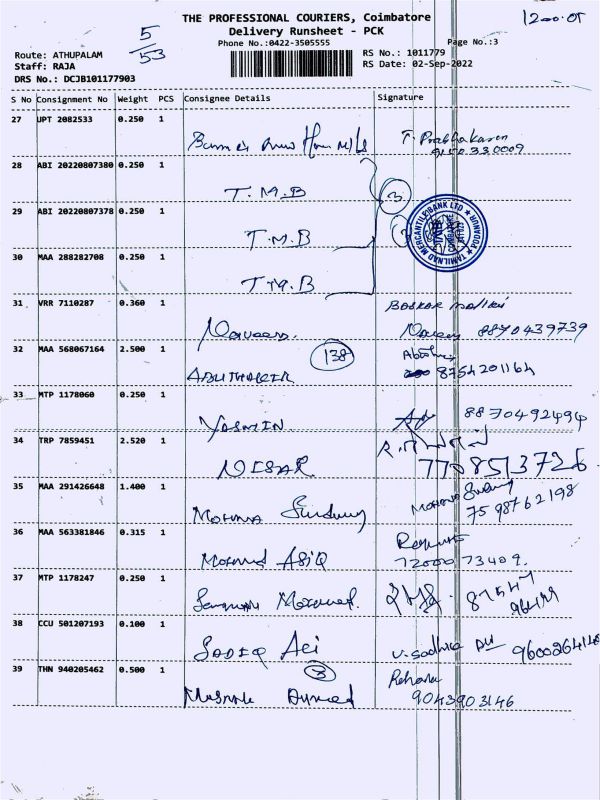 THE PROFESSIONAL COURIERS, Coimbatore
Delivery Runsheet - PCK
Phone No.:0422-3505555
Page No.:3
5/53
Route: ATHUPALAM
Staff: RAJA
DRS No.: DCJB101177903
RS No.: 1011779
RS Date: 02-Sep-2022
S No Consignment No Weight PCS Consignee Details Signature
27 UPT 2082533 0.250 1
T. Prabhakaran
28 ABI 20220807380 0.250 1
T.M.B
3
29 ABI 20220807378 0.250 1
T.M.B
TAMILNAD MERCANTILE BANK LTD
30 MAA 288282708 0.250 1
T.M.B
31 VRR 7110287 0.360 1
Naveen
Naveen 8870439739
32 MAA 568067164 2.500 1
138
ABUTHAKEER
8754201164
33 MTP 1178060 0.250 1
YASMIN
8870492494
34 TRP 7859451 2.520 1
NISAR
7708513726
35 MAA 291426648 1.400 1
Mohana Sundary
Mohana
7598762198
36 MAA 563381846 0.315 1
Mohamed ASIQ
7200073409.
37 MTP 1178247 0.250 1
38 CCU 501207193 0.100 1
SADIQ Ali
9600264140
39 THN 940205462 0.500 1
3
Ahmed
Rehana
9043903146